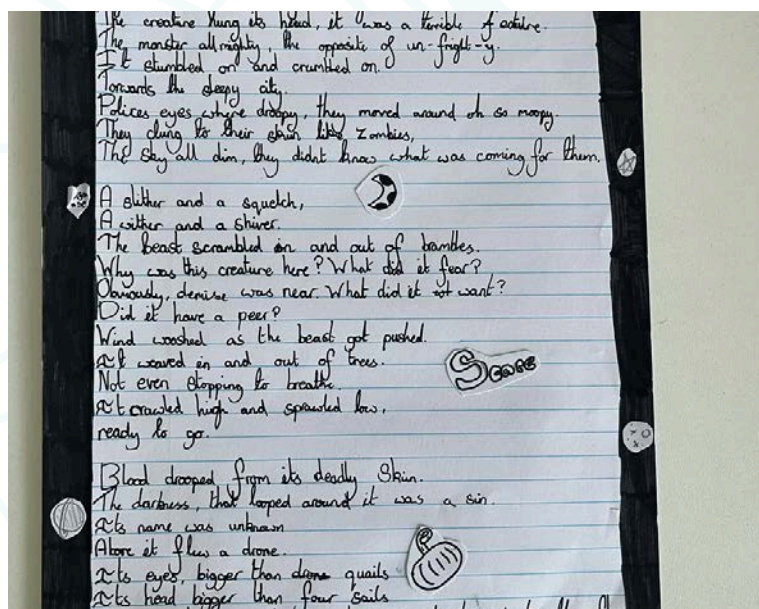 The creature hung its head, it was a terrible
The monster allmighty, the opposite of un-fright-y.
It stumbled on and crumbled on.
Torwards the sleepy city.
Polices eyes where droopy, they moved around oh so moopy.
They clung to their skin like Zombies,
The sky all dim, they didnt know what was coming for them.
A slither and a squelch,
A wither and a shiver.
The beast scrambled in and out of brambles.
Why was this creature here? What did it fear?
Obviously, demise was near. What did it not want?
Did it have a peer?
Wind wooshed as the beast got pushed.
It weaved in and out of trees.
Not even stopping to breathe.
Scare
It crawled high and sprawled low,
ready to go.
Blood drooped from its deadly Skin.
The darkness, that looped around it was a sin.
Its name was unknown
Above it flew a drone.
Its eyes, bigger than quails
Its head bigger than four sails